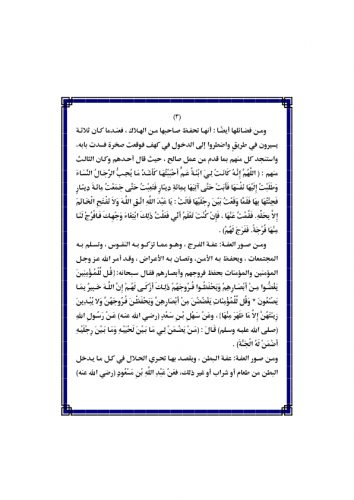 (٣)
ومن فضائلها أيضًا : أنها تحفظ صاحبها من الهلاك ، فعندما كان ثلاثة
يسيرون في طريق واضطروا إلى الدخول في كهف فوقعت صخرة فسدت بابه،
واستنجد كل منهم بما قدم من عمل صالح ، حيث قال أحدهم وكان الثالث
منهم : ( اللَّهُمَّ إِنَّهُ كَانَتْ لِيَ ابْنَةُ عَمٍّ أَحْبَبْتُهَا كَأَشَدِّ مَا يُحِبُّ الرِّجَالُ النِّسَاءَ
وَطَلَبْتُ إِلَيْهَا نَفْسَهَا فَأَبَتْ حَتَّى آتِيَهَا بِمِائَةِ دِينَارٍ فَتَعِبْتُ حَتَّى جَمَعْتُ مِائَةَ دِينَارٍ
فَجِئْتُهَا بِهَا فَلَمَّا وَقَعْتُ بَيْنَ رِجْلَيْهَا قَالَتْ : يَا عَبْدَ اللَّهِ اتَّقِ اللَّهَ وَلاَ تَفْتَحِ الْخَاتَمَ
إِلاَّ بِحَقِّهِ. فَقُمْتُ عَنْهَا ، فَإِنْ كُنْتَ تَعْلَمُ أَنِّي فَعَلْتُ ذَلِكَ ابْتِغَاءَ وَجْهِكَ فَافْرُجْ لَنَا
مِنْهَا فُرْجَةً. فَفَرَجَ لَهُمْ) .
ومن صور العفة: عفة الفرج ، وهو مما تزكو به النفوس ، وتسلم به
المجتمعات ، ويحفظ به الأمن، وتصان به الأعراض ، وقد أمر الله عز وجل
المؤمنين والمؤمنات بحفظ فروجهم وأبصارهم فقال سبحانه:{قُل لِّلْمُؤْمِنِينَ
يَغُضُّوا مِنْ أَبْصَارِهِمْ وَيَحْفَظُوا فُرُوجَهُمْ ذَلِكَ أَزْكَى لَهُمْ إِنَّ اللَّهَ خَبِيرٌ بِمَا
يَصْنَعُونَ * وَقُل لِّلْمُؤْمِنَاتِ يَغْضُضْنَ مِنْ أَبْصَارِهِنَّ وَيَحْفَظْنَ فُرُوجَهُنَّ وَلَا يُبْدِينَ
زِينَتَهُنَّ إِلَّا مَا ظَهَرَ مِنْهَا}، وعَنْ سَهْلِ بْنِ سَعْدٍ (رضي الله عنه) عَنْ رَسُولِ اللهِ
(صلى الله عليه وسلم) قَالَ : (مَنْ يَضْمَنْ لِي مَا بَيْنَ لَحْيَيْهِ وَمَا بَيْنَ رِجْلَيْهِ
أَضْمَنْ لَهُ الْجَنَّةَ) .
ومن صور العفة: عفة البطن ، ويقصد بها تحري الحلال في كل ما يدخل
البطن من طعام أو شراب أو غير ذلك، فعَنْ عَبْدِ اللَّهِ بْنِ مَسْعُودٍ (رضي الله عنه)